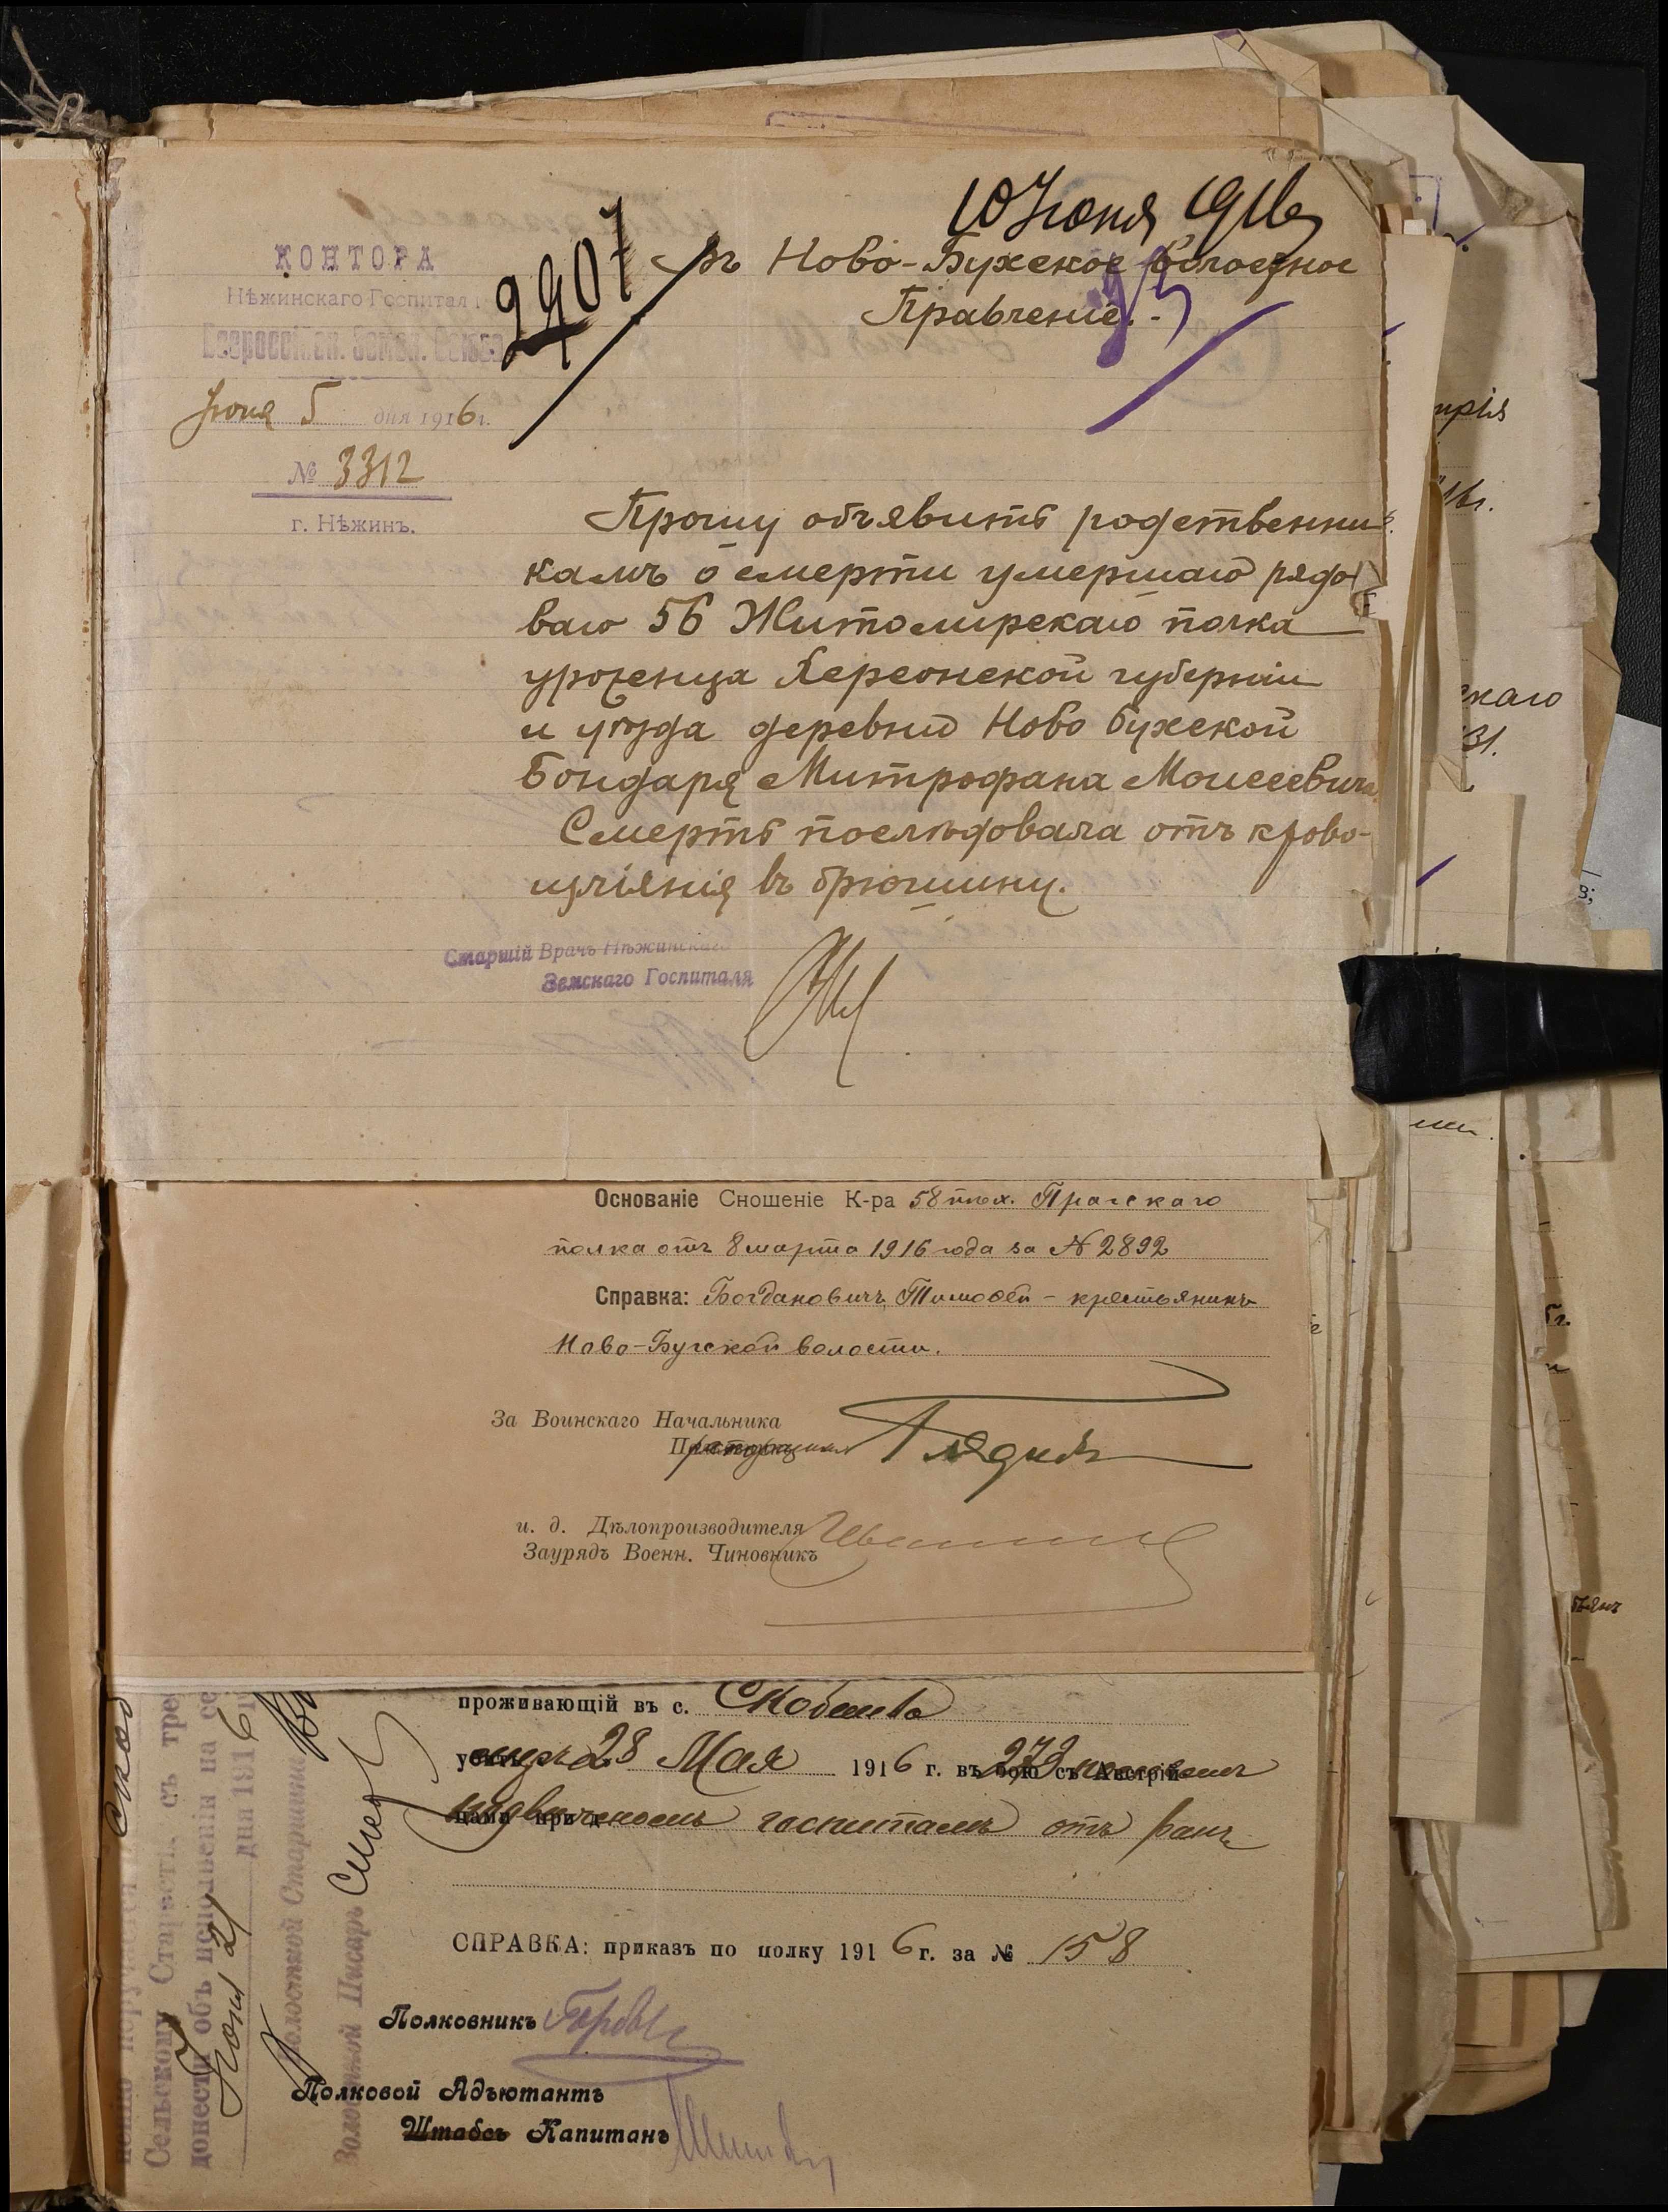 10 Іюня 1916
КОНТОРА
Нѣжинскаго Госпитал
Всероссійск. Земск. Союза
Іюня 5 дня 1916 г.
№ 3312
г. Нѣжинъ.
2407
Въ Ново-Бухское Волостное
Правленіе.-
Прошу объявить родственни
камъ о смерти умершаго рядо
ваго 56 Житомирскаго полка
уроженца Херсонской губерніи
и уѣзда деревни Ново Бухской
Бондаря Митрофана Моисеевича
Смерть послѣдовала отъ крово-
изліянія въ брюшину.
Старшій Врачъ Нѣжинскаго
Земскаго Госпиталя
Основаніе Сношеніе К-ра 58 пѣх. Прагскаго
полка отъ 8 марта 1916 года за № 2892
Справка: Богдановичъ Тимофей - крестьянинъ
Ново-Бугской волости.
За Воинскаго Начальника
и. д. Дѣлопроизводителя
Заурядъ Военн. Чиновникъ
проживающій въ с.
28 Мая 1916 г. въ бою съ Австрій
госпиталѣ отъ ранъ
СПРАВКА: приказъ по полку 1916 г. за № 158
Полковникъ
Полковой Адъютантъ
Штабсъ Капитанъ
Сельскому Старостѣ съ тре
донести объ исполненіи на се
Іюня 21 дня 1916
Волостной Старшина
Волостной Писарь
прія
скаго